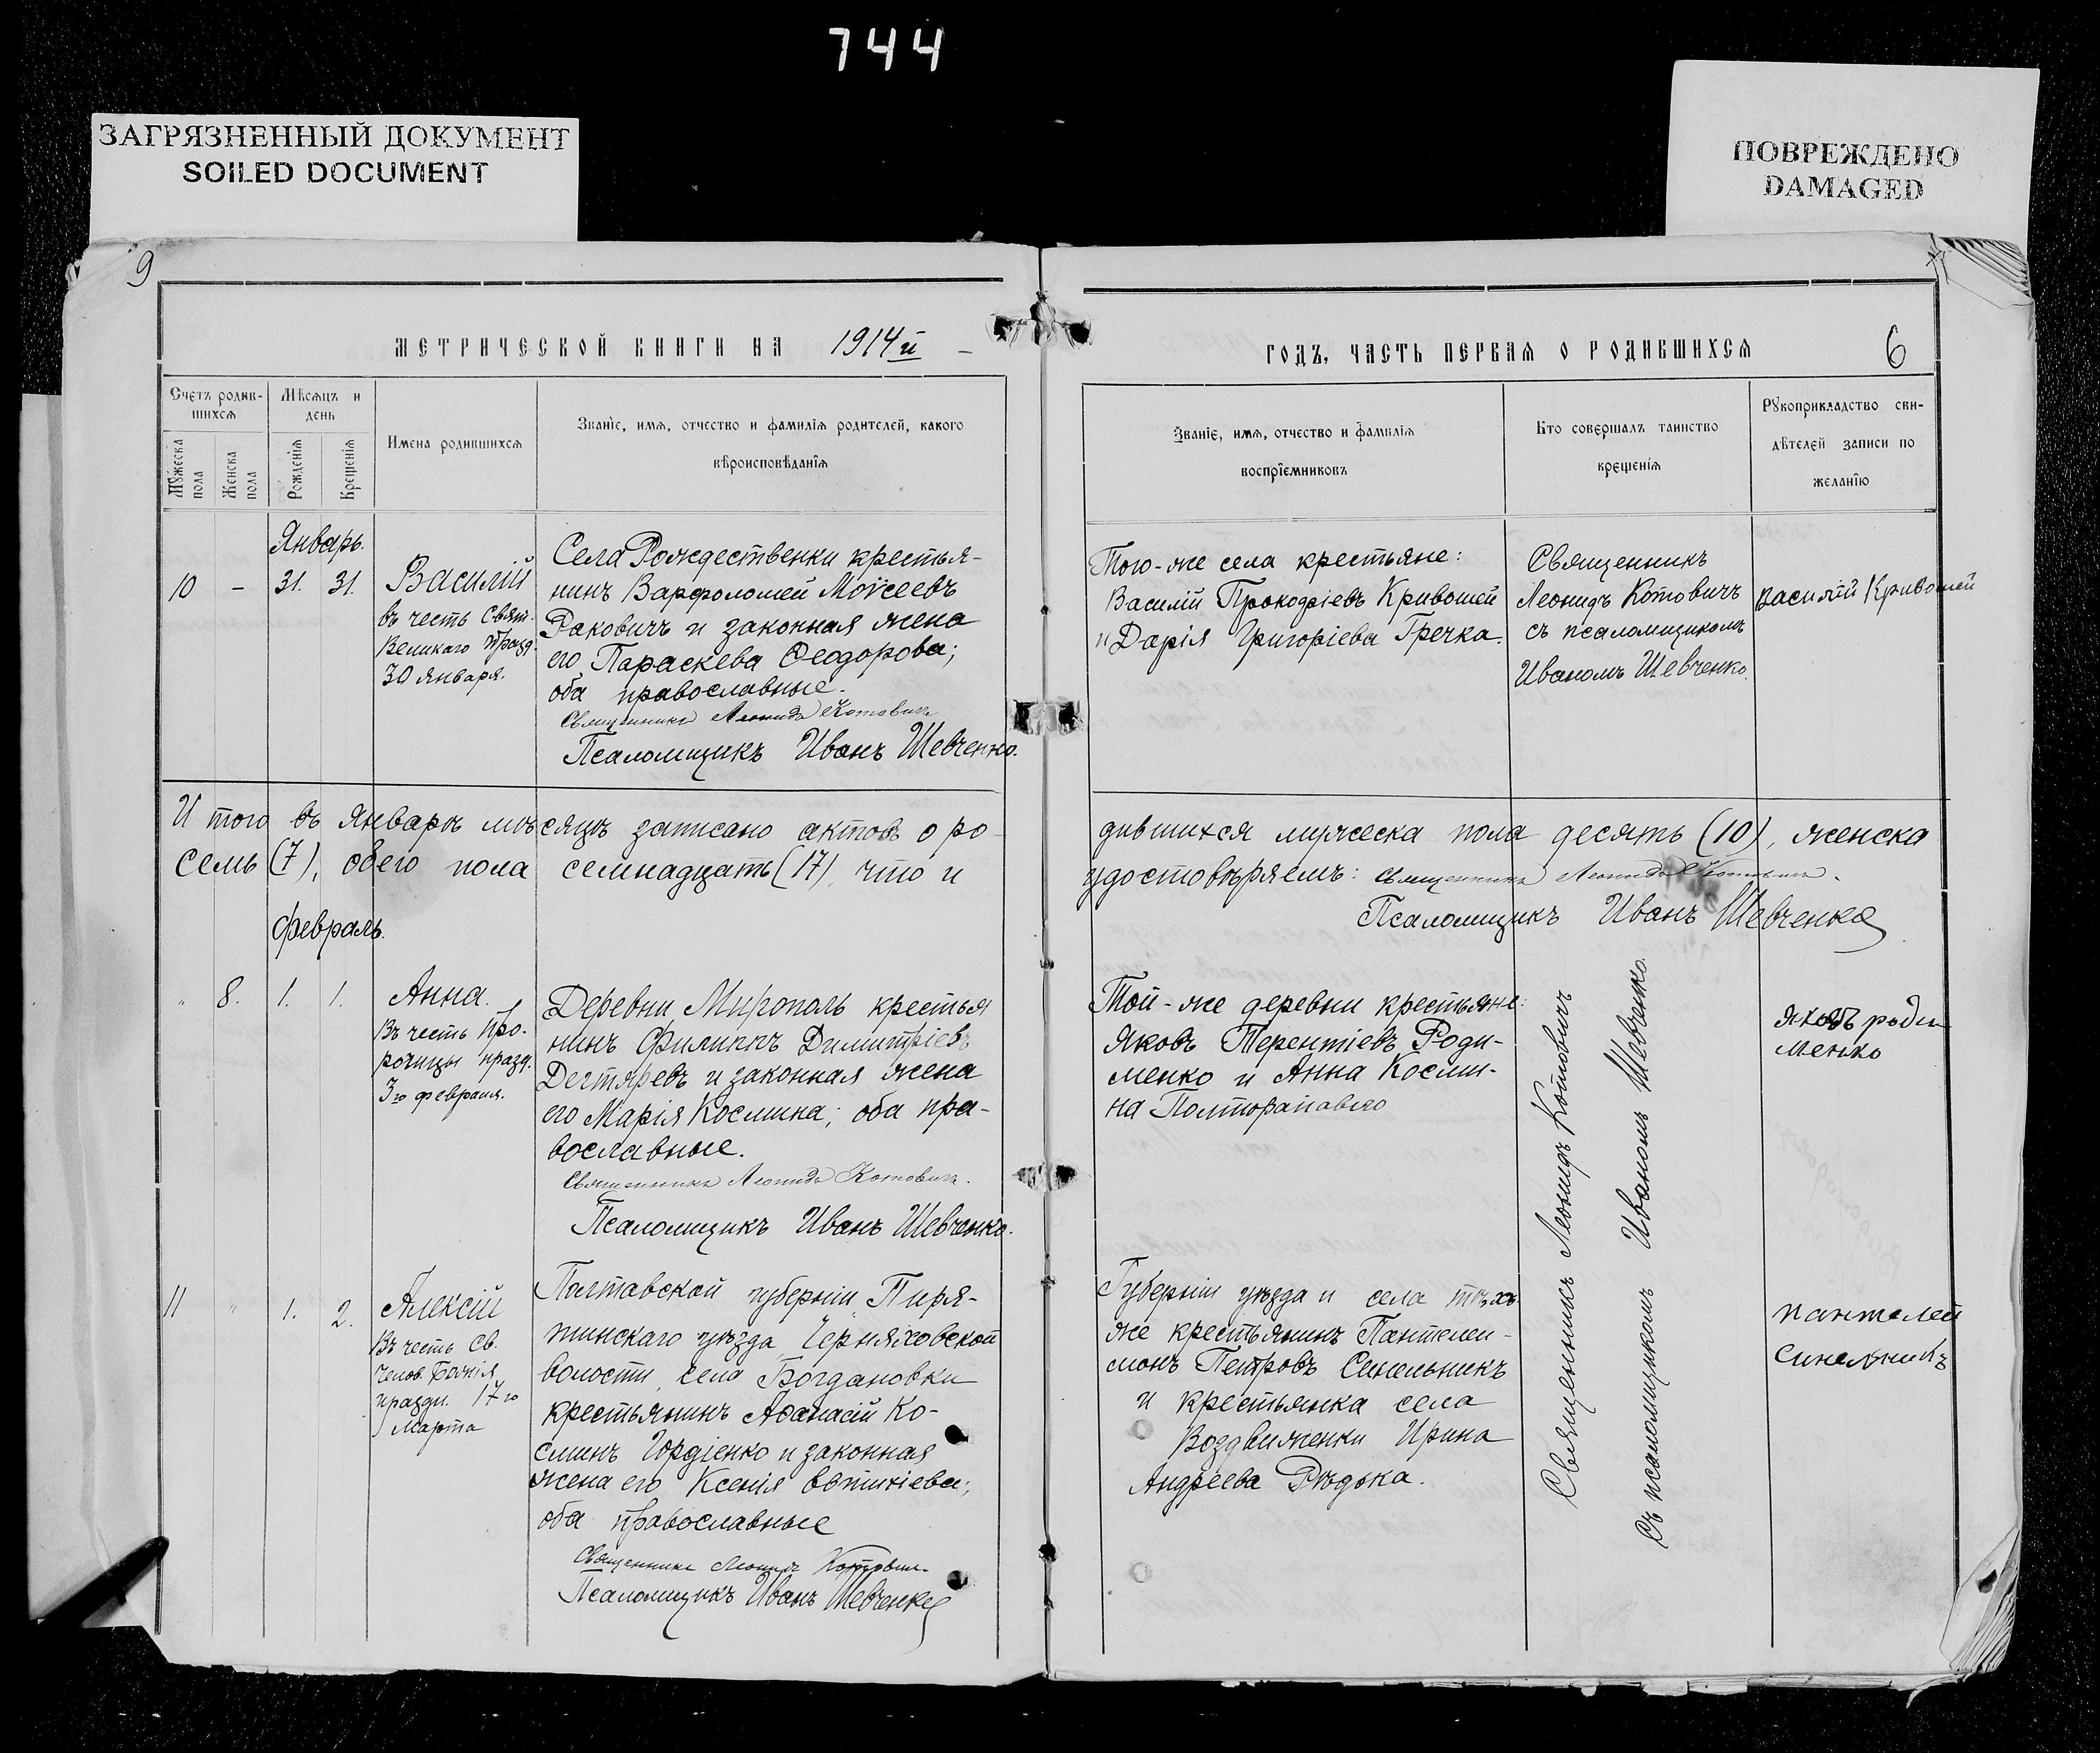 744
ЗАГРЯЗНЕННЫЙ ДОКУМЕНТ
SOILED DOCUMENT
ПОВРЕЖДЕНО
DAMAGED
9
МЕТРИЧЕСКОЙ КНИГИ НА 1914й
Счетъ родив-
шихся
Мѣсяцъ и
день
Мужеска
пола
Женска
пола
Рожденія
Крещенія
Имена родившихся
Званіе, имя, отчество и фамилія родителей, какого
вѣроисповѣданія
Январь.
10 – 31. 31.
Василій
въ честь Свят.
Великаго празд.
30 января.
Села Рождественки крестья-
нинъ Варфоломей Моѵсеевъ
Раковичъ и законная жена
его Параскева Ѳеодорова;
оба православные.
Священникъ Леонидъ Котовичъ
Псаломщикъ Иванъ Шевченко.
И того въ Январѣ мѣсяцѣ записано актовъ о ро-
семь (7), обего пола семнадцать (17), что и
Февраль.
" 8. 1. 1.
Анна.
Въ честь про-
рочицы празд.
3го февраля.
Деревни Мирополь крестья
нинъ Филиппъ Димитріевъ
Дегтяревъ и законная жена
его Марія Космина; оба пра-
вославные.
Священникъ Леонидъ Котовичъ.
Псаломщикъ Иванъ Шевченко.
11 " 1. 2.
Алексій
Въ честь Св.
Челов. Божія
праздн. 17го
Марта
Полтавской губерніи, Пиря-
тинскаго уѣзда, Черняховской
волости, села Богдановки
крестьянинъ Аѳанасій Ко-
сминъ Гордіенко и законная
жена его Ксенія Евтихіева;
оба православные
Священникъ Леонидъ Котовичъ
Псаломщикъ Иванъ Шевченко
ГОДЪ, ЧАСТЬ ПЕРВАЯ О РОДИВШИХСЯ
6
Званіе, имя, отчество и фамилія
воспріемниковъ
Кто совершалъ таинство
крещенія
Рукоприкладство сви-
дѣтелей записи по
желанію
Того-же села крестьяне:
Василій Прокофіевъ Кривошей
и Дарія Григоріева Гречка.
Священникъ
Леонидъ Котовичъ
съ псаломщикомъ
Иваномъ Шевченко.
Василій Кривошей
дившихся мужеска пола десять (10), женска
удостовѣряемъ: Священникъ Леонидъ Котовичъ.
Псаломщикъ Иванъ Шевченко
Той-же деревни крестьяне:
Яковъ Терентіевъ Роди-
менко и Анна Косми-
на
Яковъ роди
менко
Губерніи уѣзда и села тѣхъ-
же крестьянинъ Пантелеи-
монъ Петровъ Синельникъ
и крестьянка села
Воздвиженки Ирина
Андреева Рѣдька.
Священникъ Леонидъ Котовичъ
Съ псаломщикомъ Иваномъ Шевченко.
пантелей
Синельникъ